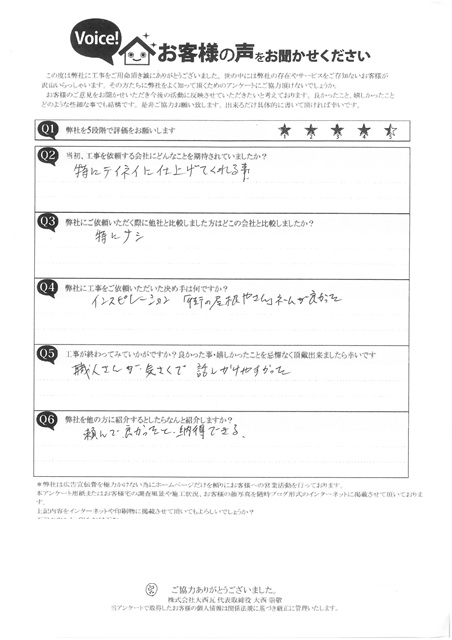 Voice!
お客様の声をお聞かせください
この度は弊社に工事をご用命頂き誠にありがとうございました。世の中には弊社の存在やサービスをご存知ないお客様が
沢山いらっしゃいます。その方たちに弊社をよく知って頂くためのアンケートにご協力頂けないでしょうか。
お客様のご意見をお聞かせいただき今後の活動に反映させていただきたいと考えております。良かったこと、嬉しかったこと
どのような些細な事でも結構です。是非ご協力お願い致します。出来るだけ具体的に書いて頂ければ幸いです。
Q1 弊社を5段階で評価をお願いします ★ ★ ★ ★ ★
1 2 3 4 5
Q2 当初、工事を依頼する会社にどんなことを期待されていましたか?
特にテイネイに仕上げてくれる事
Q3 弊社にご依頼いただく際に他社と比較しました方はどこの会社と比較しましたか?
特にナシ
Q4 弊社に工事をご依頼いただいた決め手は何ですか?
インスピレーション 「街の屋根やさん」ネームが良かった
Q5 工事が終わってみていかがですか?良かった事・嬉しかったことを忌憚なく頂戴出来ましたら幸いです
職人さんが気さくで 話しかけやすかった
Q6 弊社を他の方に紹介するとしたらなんと紹介しますか?
頼んで良かったと、納得できる。
*弊社は広告宣伝費を極力かけない為にホームページだけを頼りにお客様への営業活動を行っております。
本アンケート用紙またはお客様宅の調査風景や施工状況、お客様の顔写真を随時ブログ形式のインターネットに掲載させて頂いておりま
す。
上記内容をインターネットや印刷物に掲載させて頂いてもよろしいでしょうか?
ご協力ありがとうございました。
株式会社大西瓦 代表取締役 大西 崇敬
当アンケートで取得したお客様の個人情報は関係法令に基づき厳正に管理いたします。